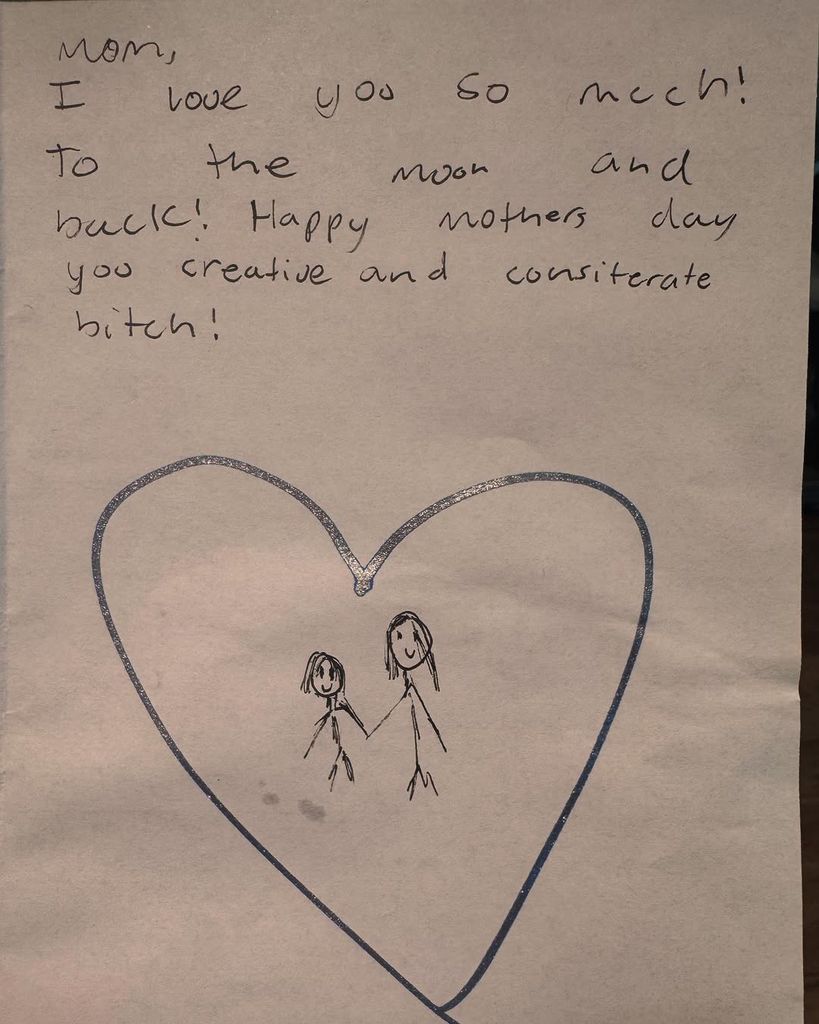 Mom,
I love you so much!
To the moon and
back! Happy mothers day
you creative and consiterate
bitch!